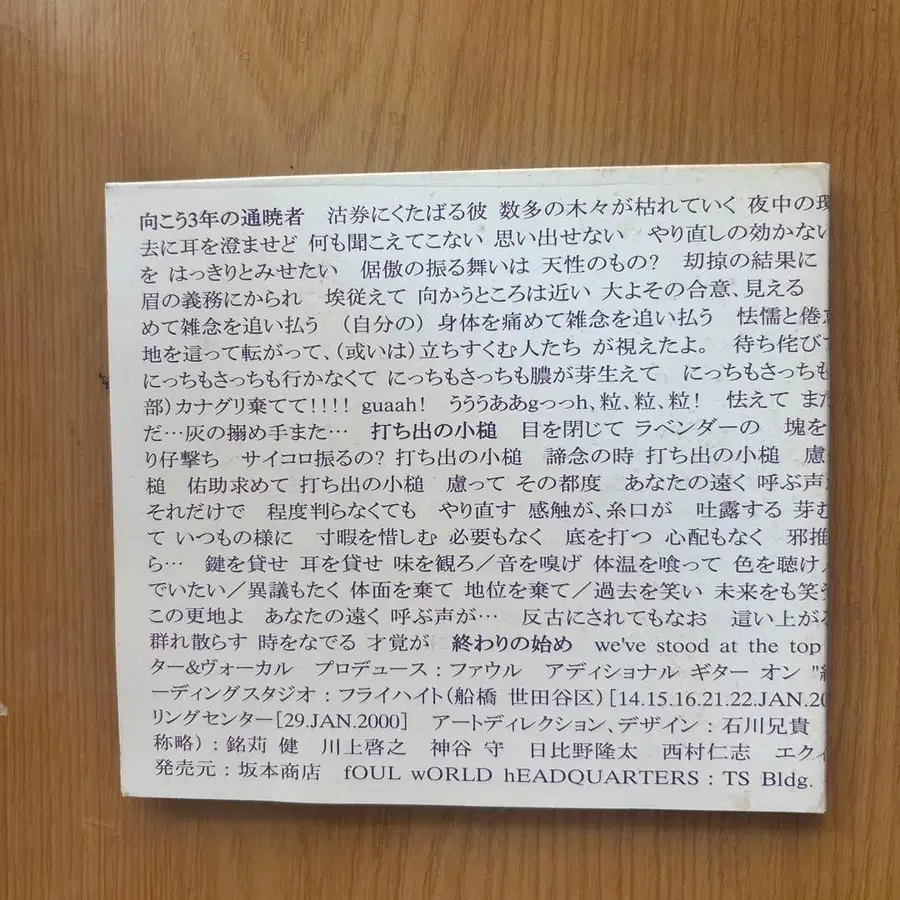 向こう3年の通暁者　沽券にくたばる彼 数多の木々が枯れていく 夜中の環
去に耳を澄ませど 何も聞こえてこない 思い出せない　やり直しの効かない
を はっきりとみせたい　倨傲の振る舞いは 天性のもの?　劫掠の結果に
眉の義務にかられ　埃従えて 向かうところは近い 大よその合意、見える
めて雑念を追い払う　（自分の）身体を痛めて雑念を追い払う　怯懦と倦
地を這って転がって、（或いは）立ちすくむ人たち が視えたよ。　待ち侘びて
にっちもさっちも行かなくて にっちもさっちも膿が芽生えて　にっちもさっちも
部）カナグリ棄てて!!!! guaah!　うううああgっっh、粒、粒、粒!　怯えて また
だ…灰の搦め手また…　打ち出の小槌　目を閉じて ラベンダーの　塊を
り仔撃ち　サイコロ振るの? 打ち出の小槌　諦念の時 打ち出の小槌　慮
槌　佑助求めて 打ち出の小槌　慮って その都度　あなたの遠く 呼ぶ声が
それだけで　程度判らなくても　やり直す 感触が、糸口が　吐露する 芽む
て いつもの様に　寸暇を惜しむ 必要もなく　底を打つ 心配もなく　邪推
ら…　鍵を貸せ 耳を貸せ 味を観ろ／音を嗅げ 体温を喰って 色を聴け
でいたい／異議もたく 体面を棄て 地位を棄て／過去を笑い 未来をも笑
この更地よ　あなたの遠く 呼ぶ声が…　反古にされてもなお　這い上がる
群れ散らす 時をなでる 才覚が　終わりの始め　we've stood at the top
ター&ヴォーカル　プロデュース：ファウル　アディショナル ギター オン "終
ーディングスタジオ：フライハイト（船橋 世田谷区）[14.15.16.21.22.JAN.20
リングセンター[29.JAN.2000]　アートディレクション、デザイン：石川兄貴
称略）：銘苅 健　川上啓之　神谷 守　日比野隆太　西村仁志　エクィ
発売元：坂本商店　fOUL wORLD hEADQUARTERS：TS Bldg.